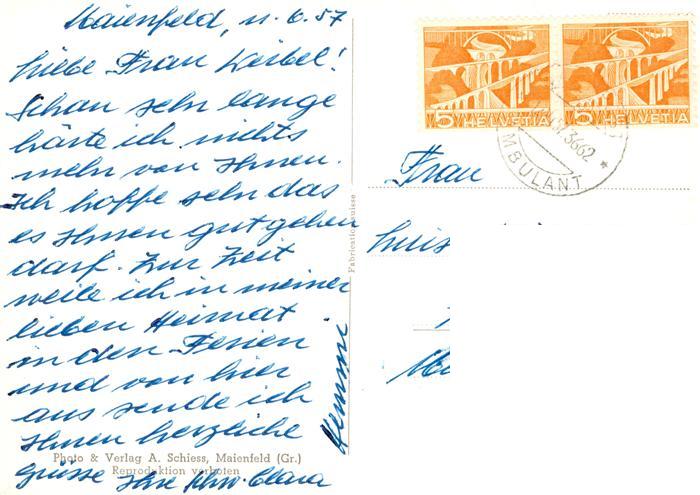 Maienfeld, 11. 6. 57
Liebe Frau Weibel!
Schon sehr lange
hörte ich nichts
mehr von Ihnen.
Ich hoffe sehr das
es Ihnen gut gehen
darf. Zur Zeit
weile ich in meiner
lieben Heimat
in den Ferien
und von hier
aus sende ich
Ihnen herzliche
Grüsse Ihre Schw. Clara
Hemmi
Photo & Verlag A. Schiess, Maienfeld (Gr.)
Reproduktion verboten
Fabrication suisse
5 HELVETIA
5 HELVETIA
3662 *
MBULANT
Frau
Luis